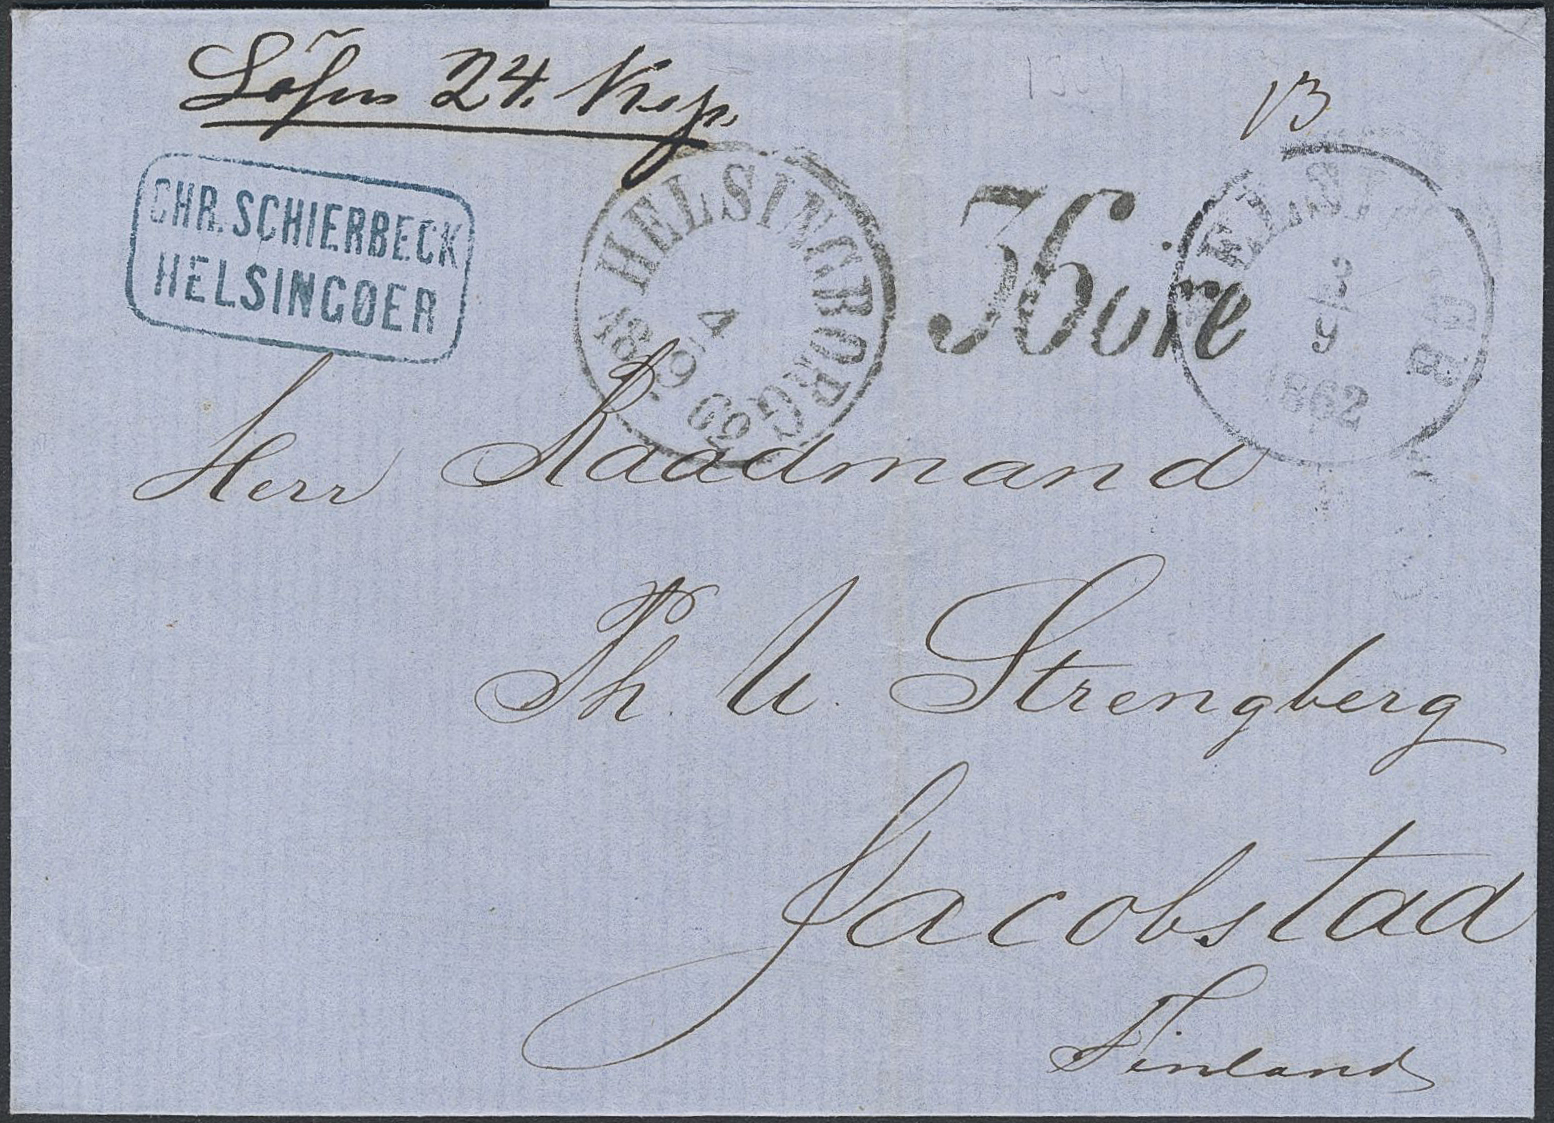 Lösen 24. Kop.
13
CHR. SCHIERBECK
HELSINGOER
HELSINGBORG
4
9
1862
36 öre
HELSINGBORG
3
9
1862
Herr Raadmand
Ph. U. Strengberg
Jacobstad
Finland